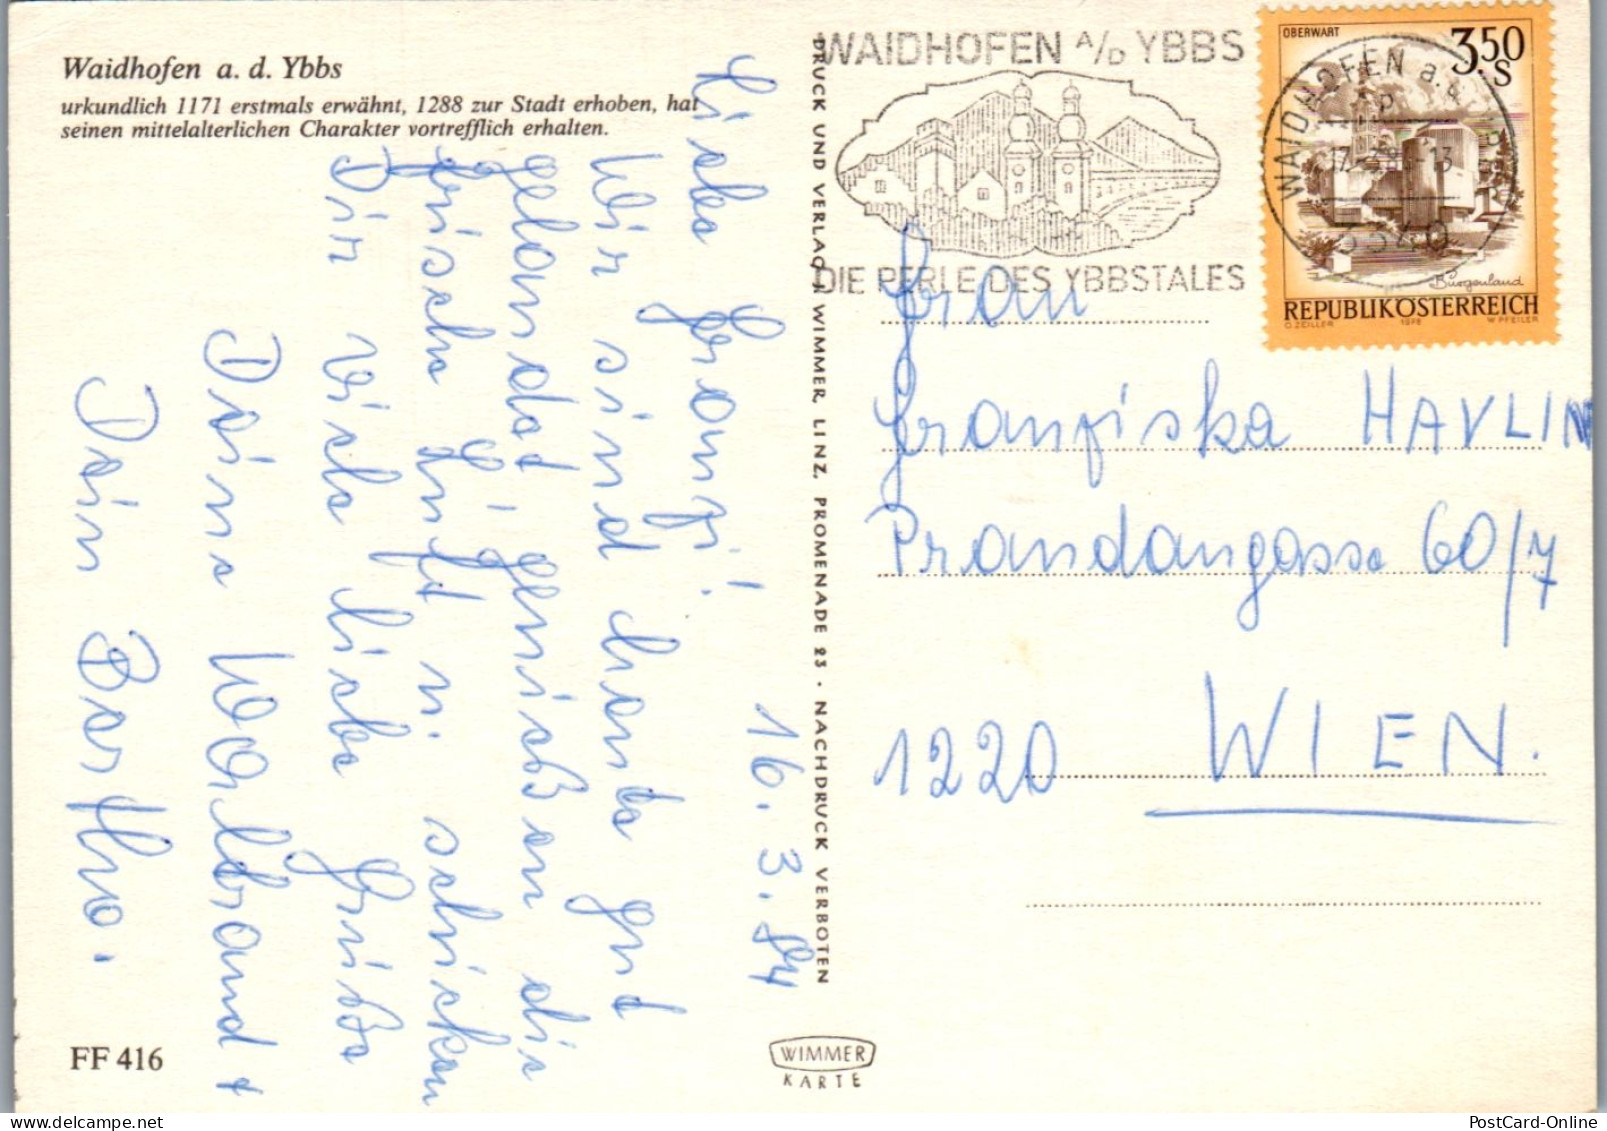 Waidhofen a. d. Ybbs
urkundlich 1171 erstmals erwähnt, 1288 zur Stadt erhoben, hat
seinen mittelalterlichen Charakter vortrefflich erhalten.
16. 3. 84
Liebe Franzi!
Wir sind heute gut
gelandet, genießen die
frische Luft u. schicken
Dir viele liebe Grüße
Deine Waltraud +
Dein Bertho.
FF 416
DRUCK UND VERLAG WIMMER, LINZ, PROMENADE 23 · NACHDRUCK VERBOTEN
WIMMER
KARTE
WAIDHOFEN A/D YBBS
DIE PERLE DES YBBSTALES
OBERWART
3.50
S
WAIDHOFEN a. d.
3340
Burgenland
REPUBLIK ÖSTERREICH
O. ZEILLER 1978 W. PFEILER
Frau
Franziska HAVLIN
Prandaugasse 60/7
1220 WIEN.
PostCard-Online